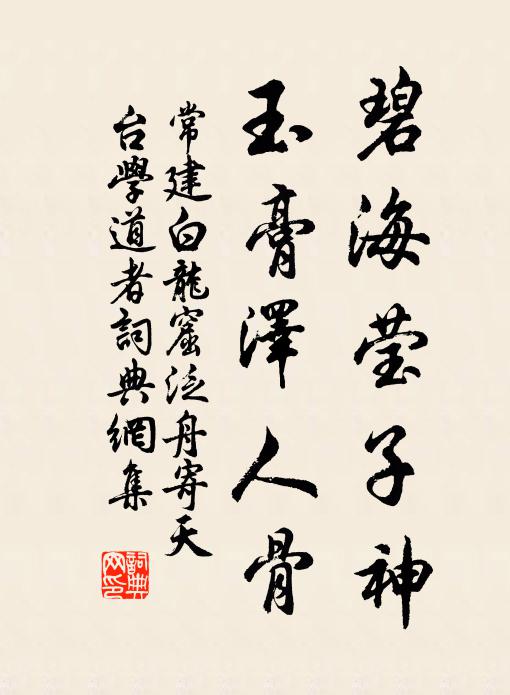 碧海莹子神
玉膏澤人骨
常建白龍窟泛舟寄天
台學道者詞典網集
詞典
网印